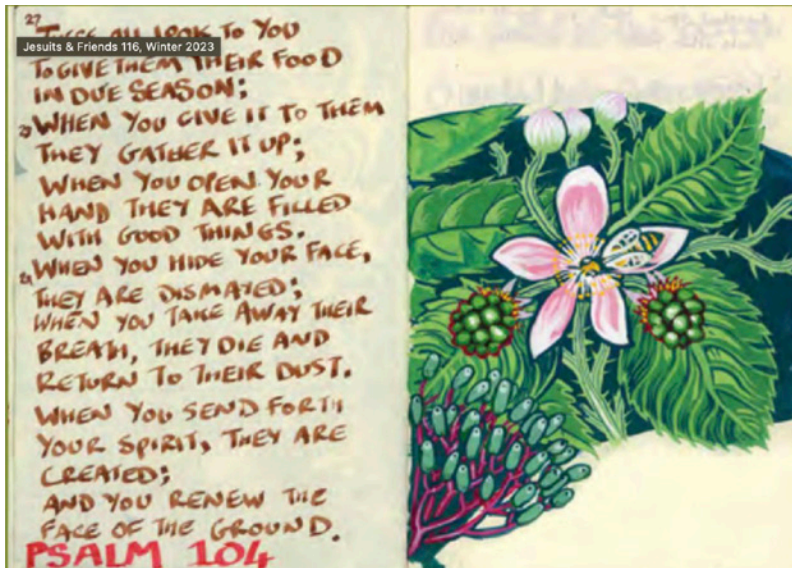 27
THESE ALL LOOK TO YOU
Jesuits & Friends 116, Winter 2023
TO GIVE THEM THEIR FOOD
IN DUE SEASON;
WHEN YOU GIVE IT TO THEM
THEY GATHER IT UP;
WHEN YOU OPEN YOUR
HAND THEY ARE FILLED
WITH GOOD THINGS.
WHEN YOU HIDE YOUR FACE,
THEY ARE DISMAYED;
WHEN YOU TAKE AWAY THEIR
BREATH, THEY DIE AND
RETURN TO THEIR DUST.
WHEN YOU SEND FORTH
YOUR SPIRIT, THEY ARE
CREATED;
AND YOU RENEW THE
FACE OF THE GROUND.
PSALM 104